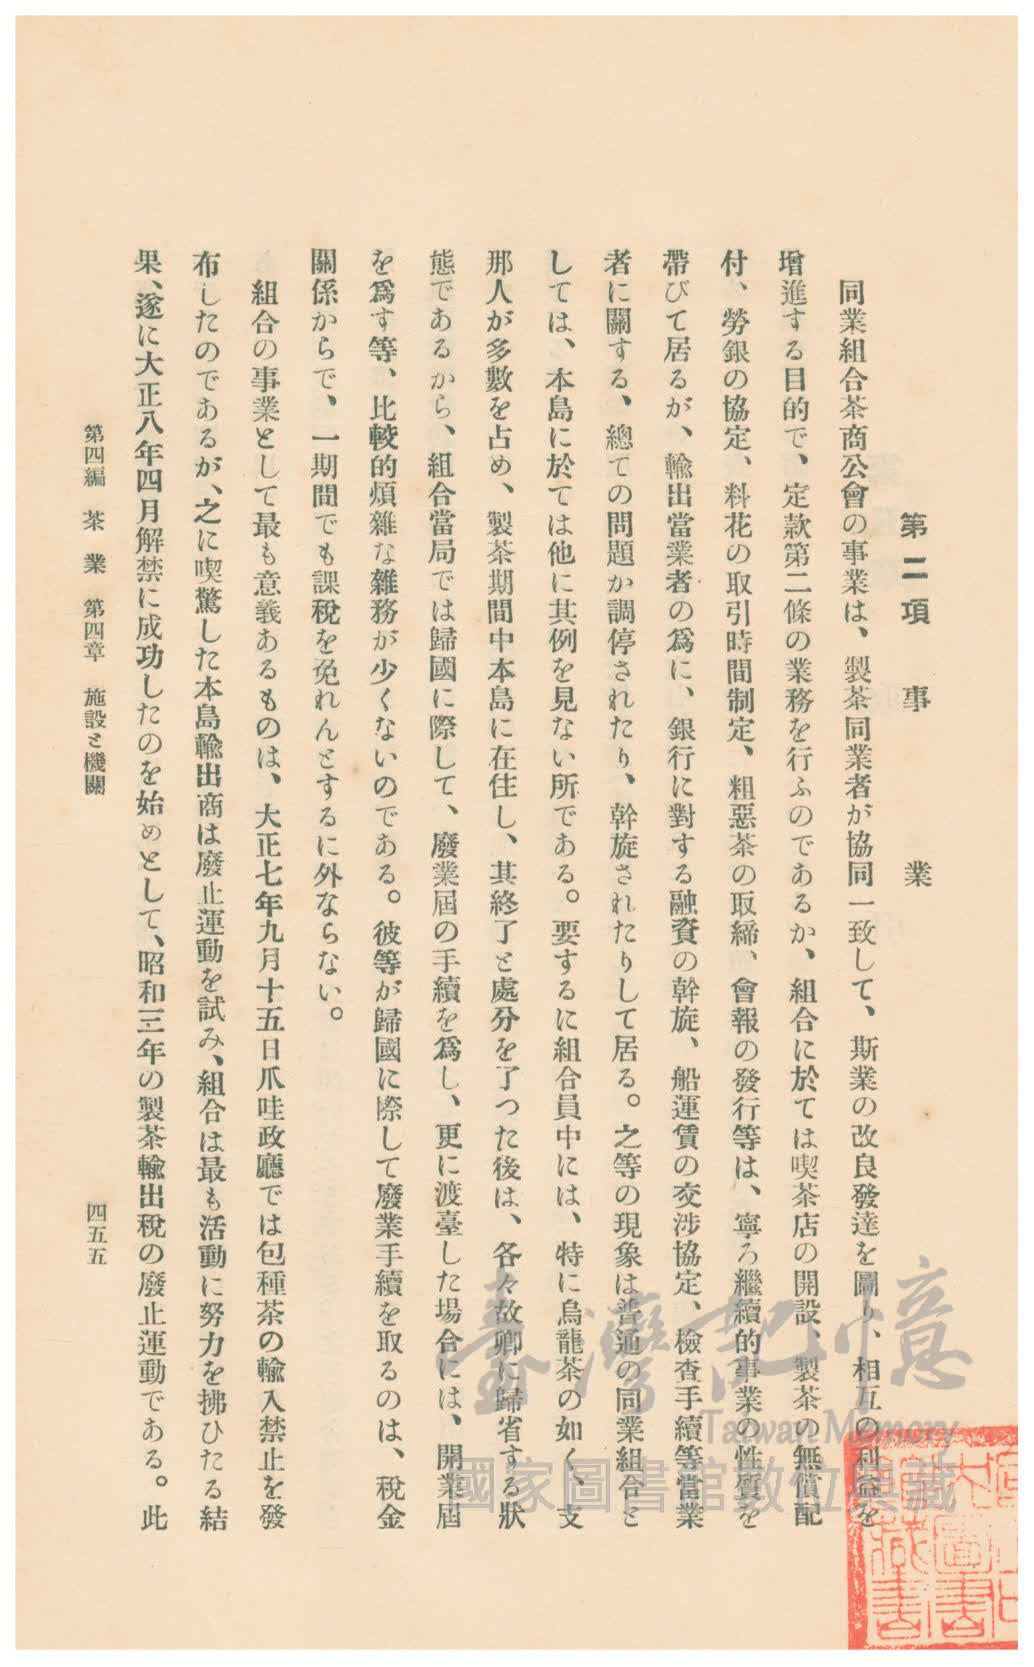 第二項 事業
同業組合茶商公會の事業は、製茶同業者が協同一致して、斯業の改良發達を圖り、相互の利益を
增進する目的で、定款第二條の業務を行ふのであるか、組合に於ては喫茶店の開設、製茶の無償配
付、勞銀の協定、料花の取引時間制定、粗惡茶の取締、會報の發行等は、寧ろ繼續的事業の性質を
帶びて居るが、輸出當業者の爲に、銀行に對する融資の幹旋、船運賃の交渉協定、檢查手續等當業
者に關する、總ての問題か調停されたり、幹旋されたりして居る。之等の現象は普通の同業組合と
しては、本島に於ては他に其例を見ない所である。要するに組合員中には、特に烏龍茶の如く、支
那人が多數を占め、製茶期間中本島に在住し、其終了と處分を了つた後は、各々故卿に歸省する狀
態であるから、組合當局では歸國に際して、廢業屆の手續を爲し、更に渡臺した場合には、開業屆
を爲す等、比較的煩雜な雜務が少くないのである。彼等が歸國に際して廢業手續を取るのは、稅金
關係からで、一期間でも課稅を免れんとするに外ならない。
組合の事業として最も意義あるものは、大正七年九月十五日爪哇政廳では包種茶の輸入禁止を發
布したのであるが、之に喫驚した本島輸出商は廢止運動を試み、組合は最も活動に努力を拂ひたる結
果、遂に大正八年四月解禁に成功したのを始めとして、昭和三年の製茶輸出稅の廢止運動である。此
第四編 茶業 第四章 施設と機關
四五五
臺灣記憶
Taiwan Memory
國家圖書館數位典藏